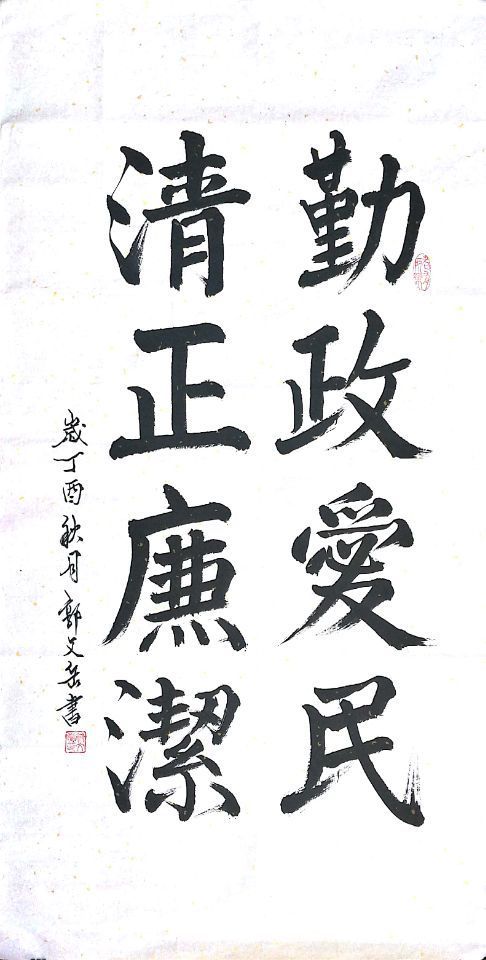 勤政愛民
清正廉潔
歲丁酉秋月郭文岳書